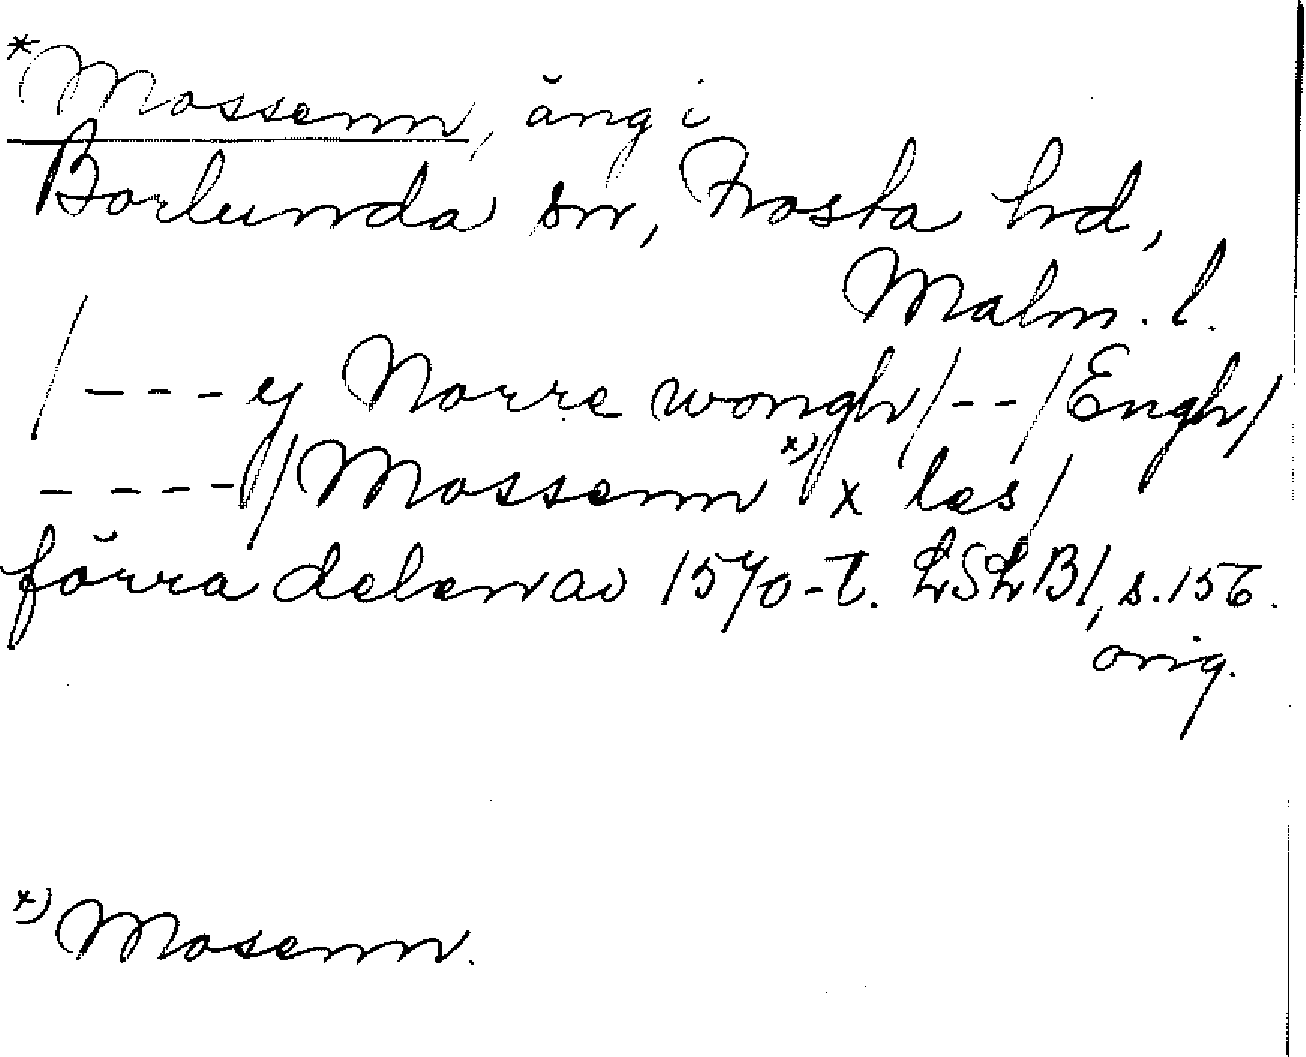 *Mossenn, äng i
Borlunda sn, Frosta hd,
Malm. l.
/ - - - y Norre wongh / - - / Engh /
- - - - / Mossenn x) x les /
förra delen av 1570-t. LSLB1, s. 156.
orig.
x) Mosenn.